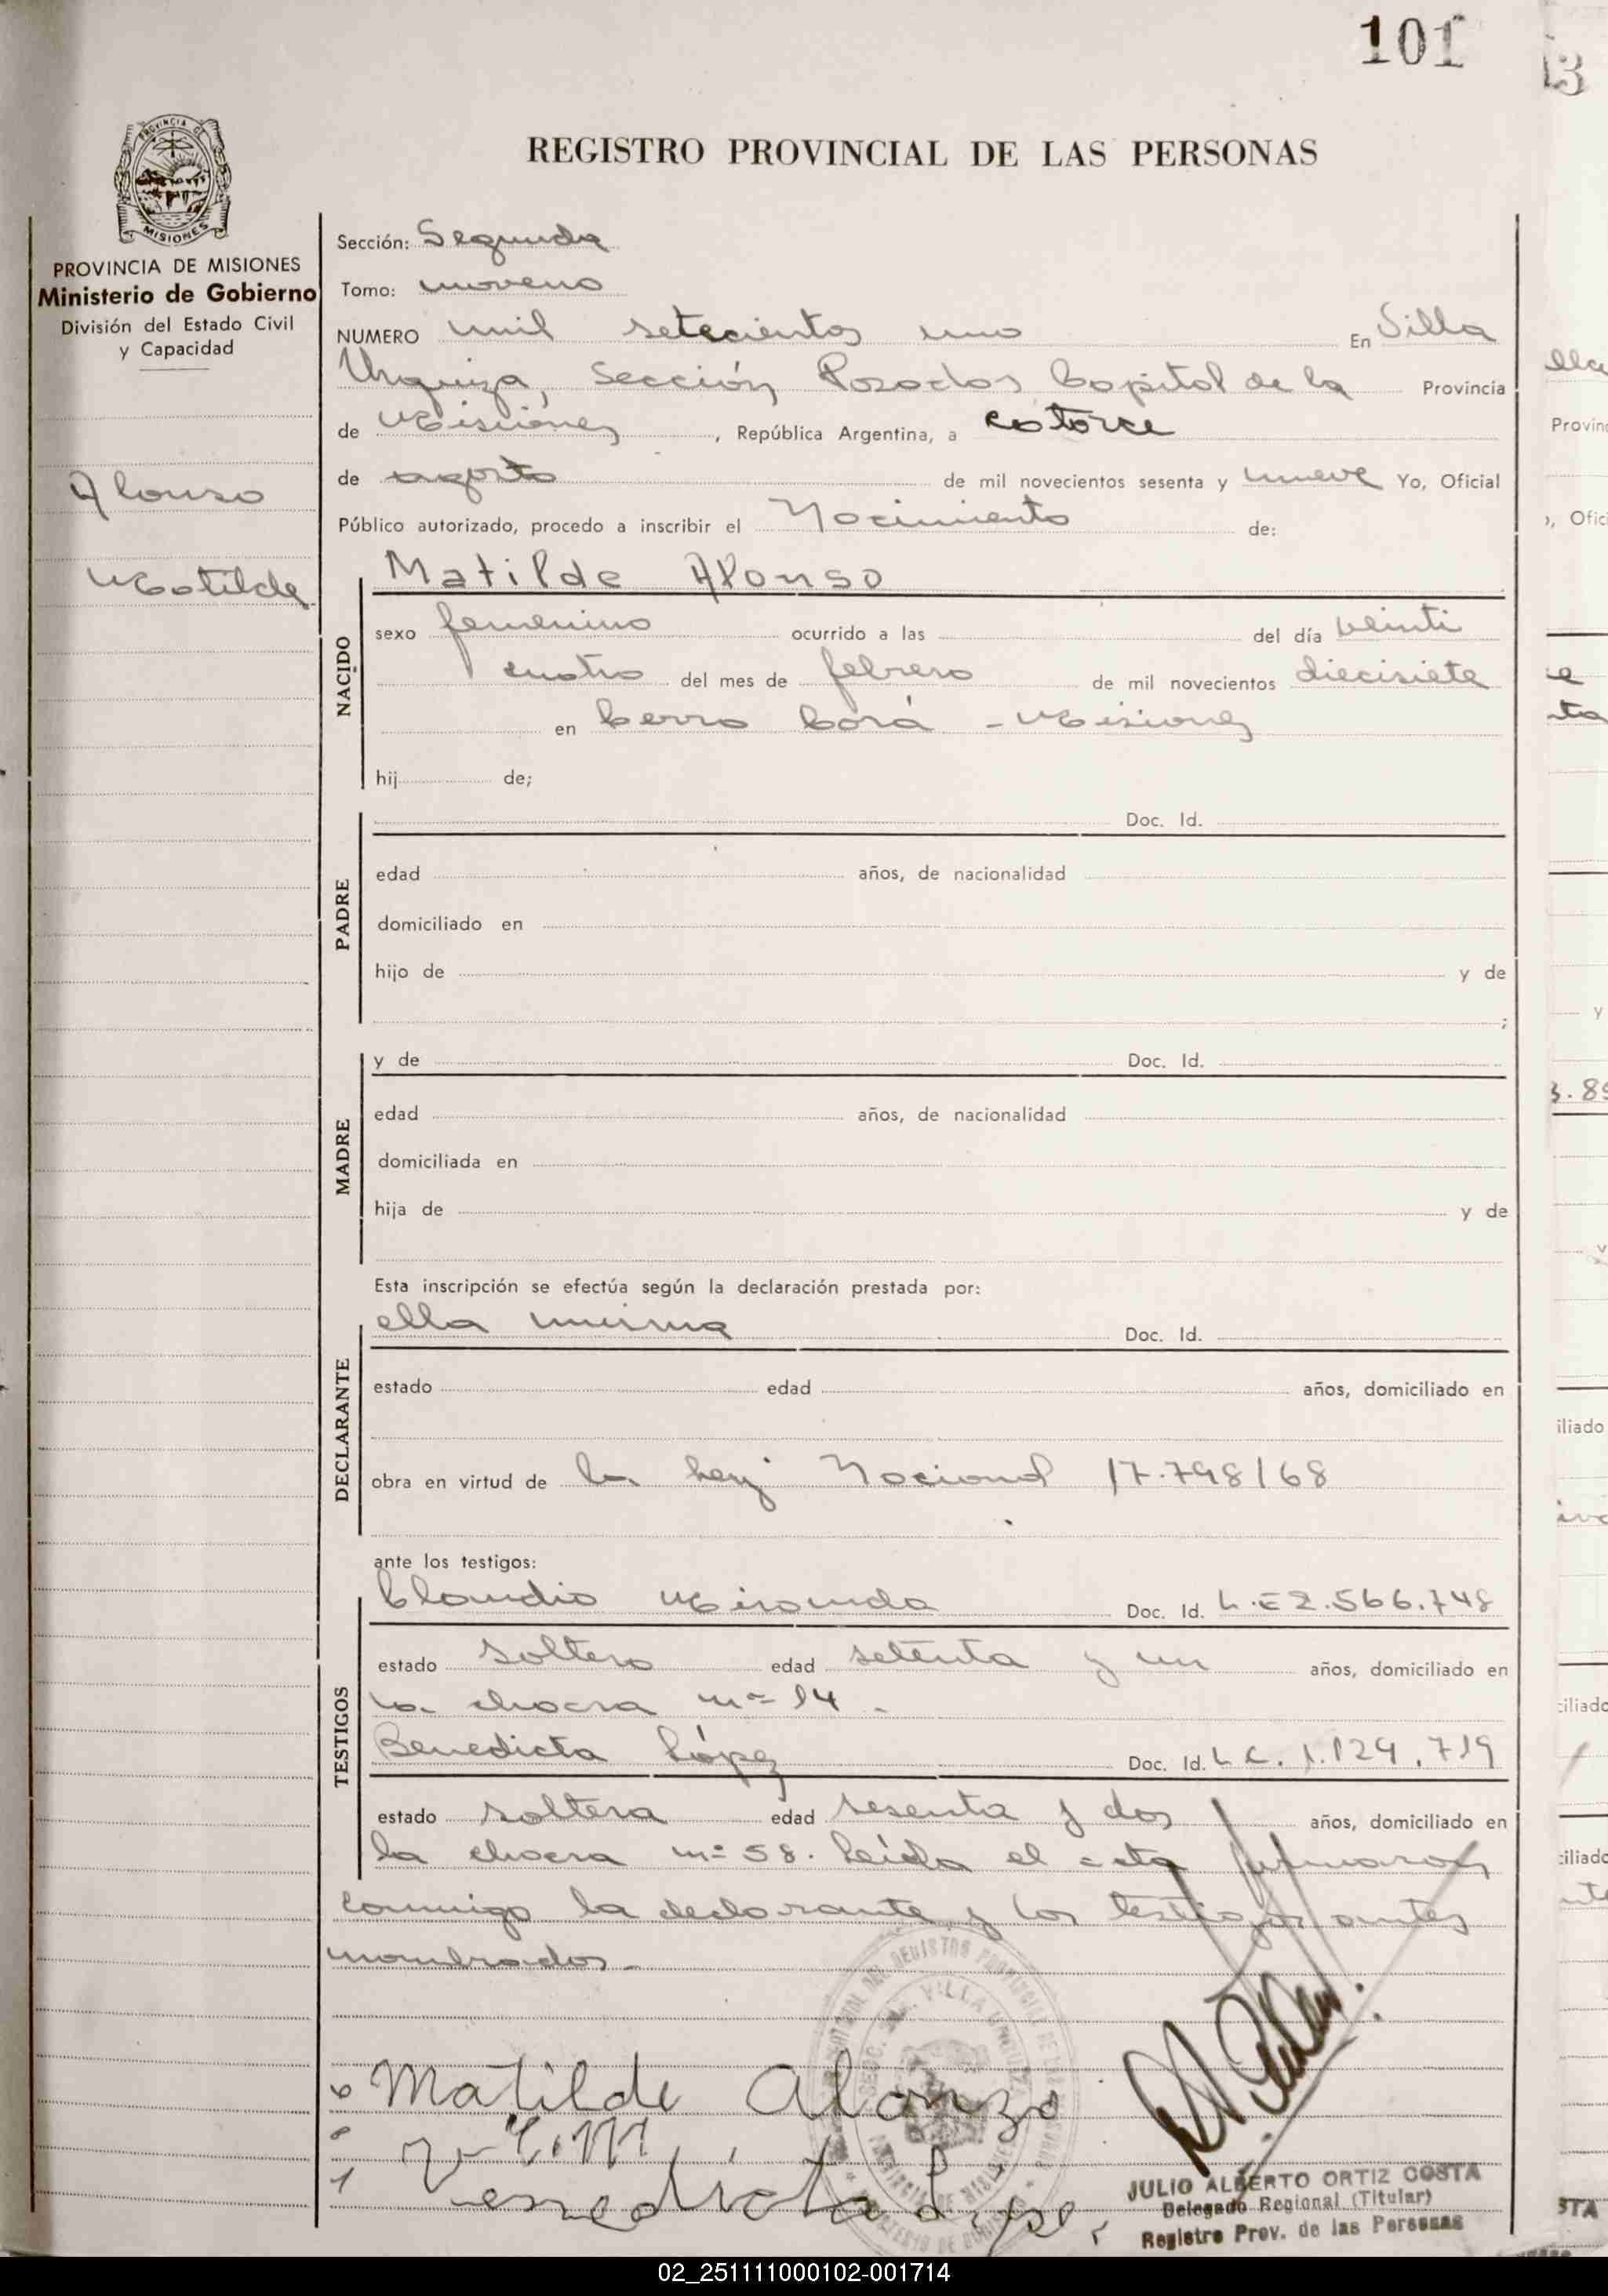 101
REGISTRO PROVINCIAL DE LAS PERSONAS
PROVINCIA DE MISIONES
Ministerio de Gobierno
División del Estado Civil
y Capacidad
Alonso
Matilde
Sección: Segunda
Tomo: noveno
NUMERO mil setecientos uno En Villa
Urquiza, Sección Posadas Capital de la Provincia
de Misiones, República Argentina, a catorce
de agosto de mil novecientos sesenta y nueve Yo, Oficial
Público autorizado, procedo a inscribir el Nacimiento de:
NACIDO
Matilde Alonso
sexo femenino ocurrido a las del día veinti
cuatro del mes de febrero de mil novecientos diecisiete
en Cerro Corá - Misiones
hij de;
PADRE
Doc. Id.
edad años, de nacionalidad
domiciliado en
hijo de y de
;
MADRE
y de Doc. Id.
edad años, de nacionalidad
domiciliada en
hija de y de
Esta inscripción se efectúa según la declaración prestada por:
DECLARANTE
ella misma Doc. Id.
estado edad años, domiciliado en
obra en virtud de la Ley Nacional 17.798/68
ante los testigos:
TESTIGOS
Claudio Miranda Doc. Id. L.E 2.566.748
estado soltero edad setenta y un años, domiciliado en
la chacra nº 14.
Benedicta López Doc. Id. L.C. 1.124.719
estado soltera edad sesenta y dos años, domiciliado en
la chacra nº 58. Leída el acta firmaron
conmigo la declarante y los testigos antes
nombrados.-
Matilde Alonzo
JULIO ALBERTO ORTIZ COSTA
Delegado Regional (Titular)
Registro Prov. de las Personas
02_251111000102-001714